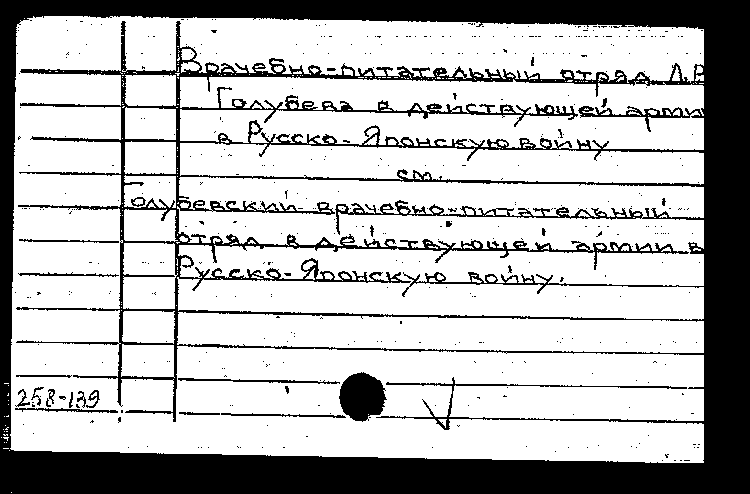 Врачебно-питательный отряд Л.В
Голубева в действующей армии
в Русско-Японскую войну
см.
Голубевский врачебно-питательный
отряд в действующей армии в
Русско-Японскую войну.
258-139